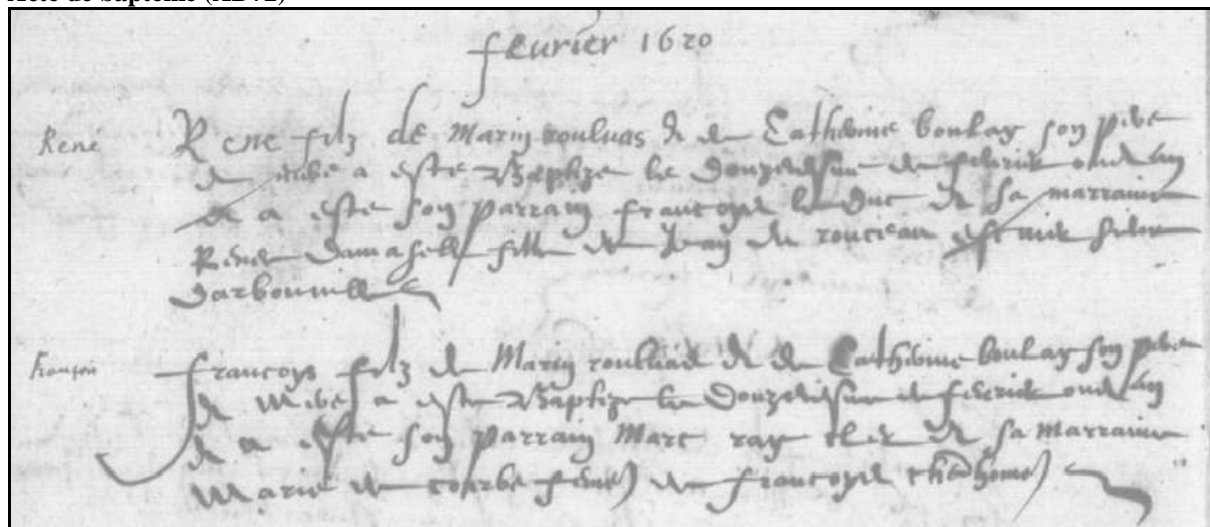 feurier 1620
René
Rene filz de Marin rouluas & de Catherine boulay son pere
& mere a este Baptize le douziesme de feburier oudit an
& a este son parrain Francoys le duc & sa marraine
Renee damaselle fille de Jean du rouceau
Darbouville
francois
francoys filz de Marin roulluas & de Catherine boulay son pere
& mere a este Baptize le douziesme de feburier oudit an
& a este son parrain Marc ray & sa marraine
Marie de courbe femme de francoys